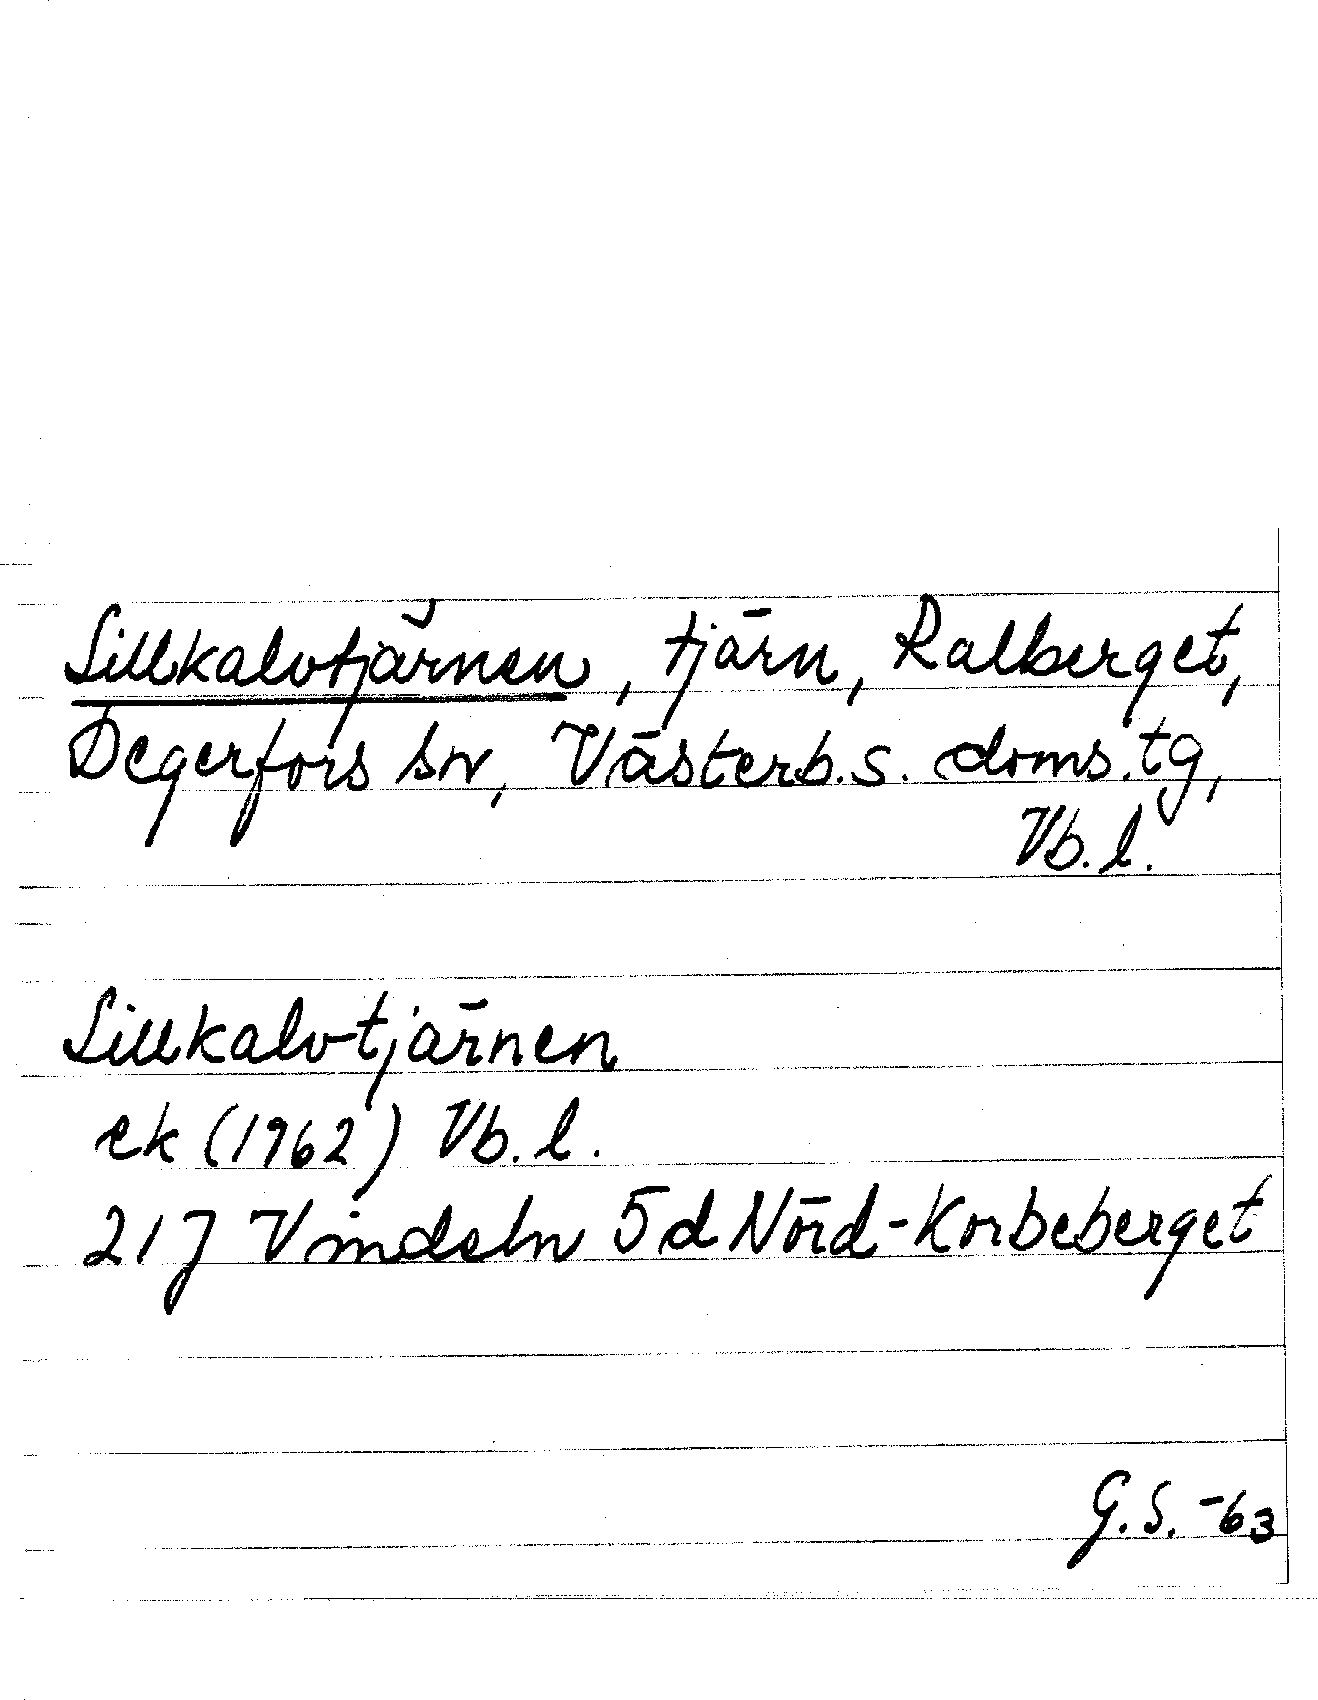 Lillkalvtjärnen, tjärn, Ralberget,
Degerfors sn, Västerb.s. doms.tg,
Vb. l.
Lillkalvtjärnen
ek (1962) Vb. l.
21J Vindeln 5d Nörd-Korbeberget
G.S. -63